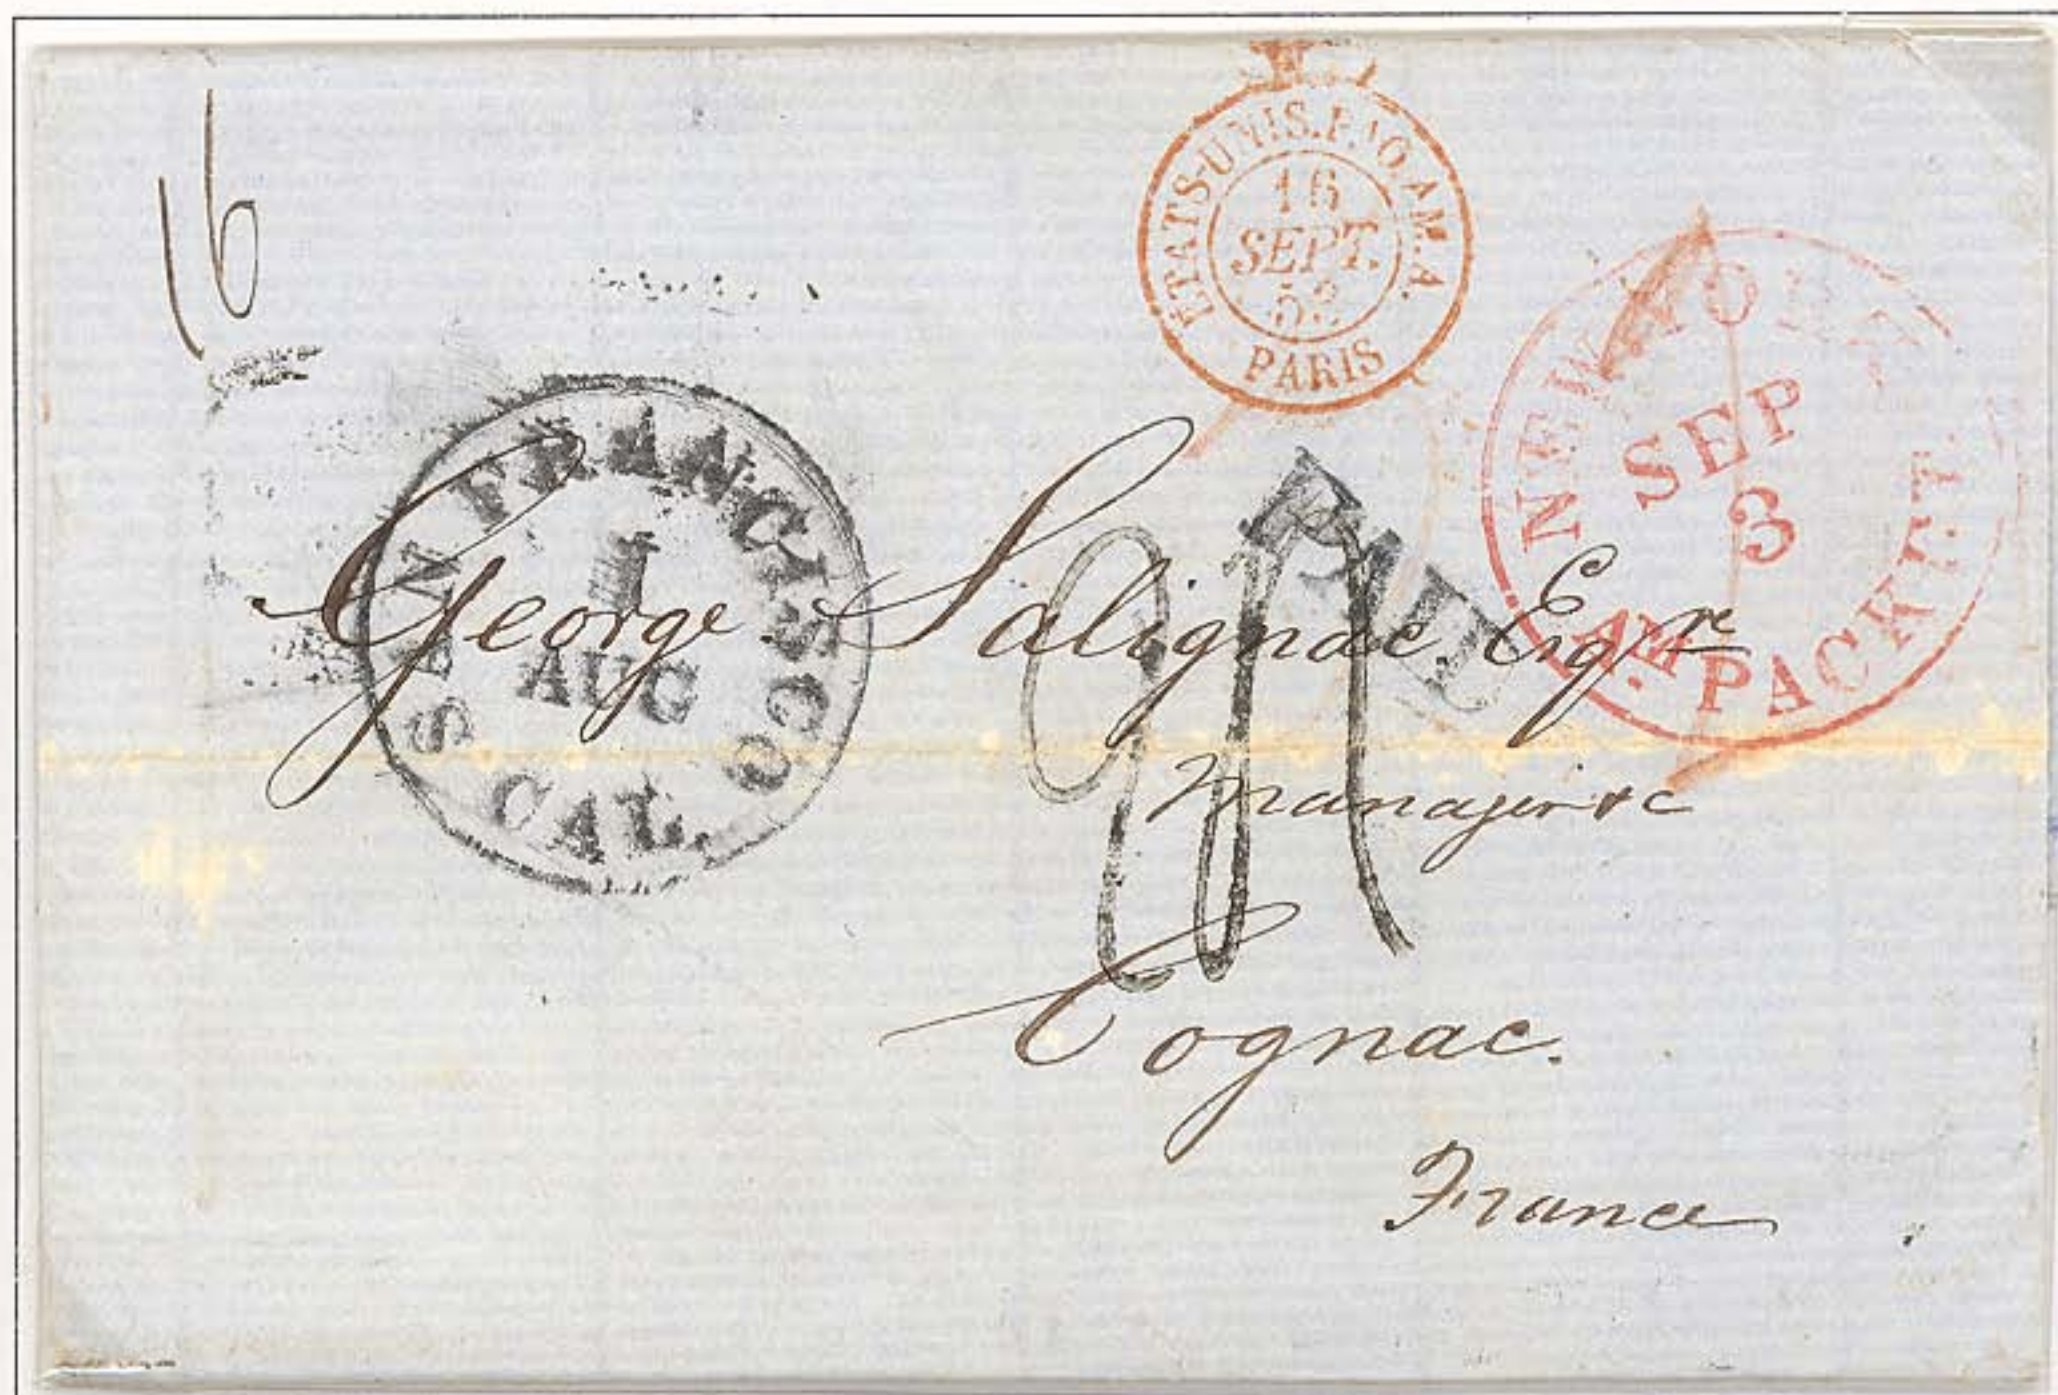 16
ETATS-UNIS.P.VO.AM.A.
16
SEPT.
PARIS
NEW-YORK
SEP
3
AM. PACKET
SAN FRANCISCO
1
AUG
CAL.
George Salignac Esqre
Manager &c
Cognac.
France